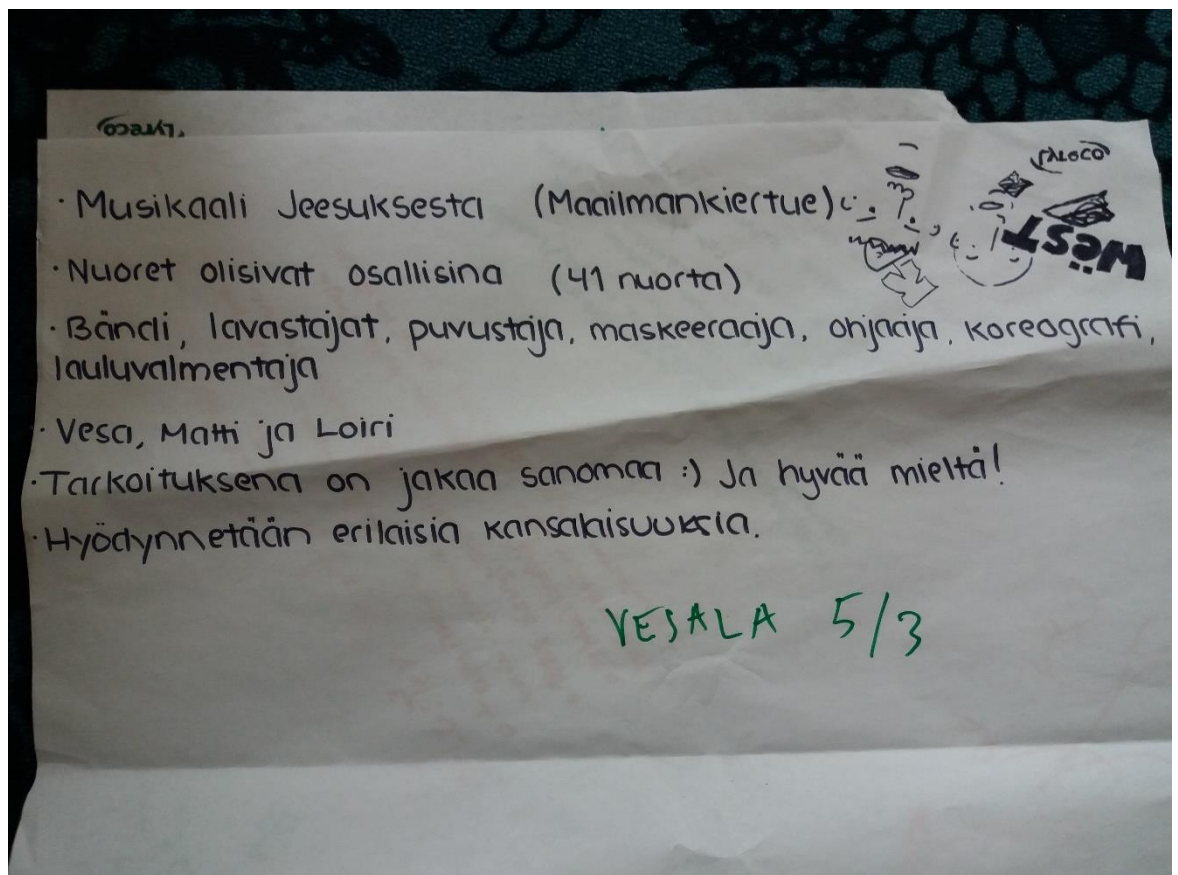 · Musikaali Jeesuksesta (Maailmankiertue)
· Nuoret olisivat osallisina (41 nuorta)
· Bändi, lavastajat, puvustaja, maskeeraaja, ohjaaja, koreografi,
lauluvalmentaja
· Vesa, Matti ja Loiri
· Tarkoituksena on jakaa sanomaa :) Ja hyvää mieltä!
· Hyödynnetään erilaisia kansalaisuuksia.
VESALA 5/3